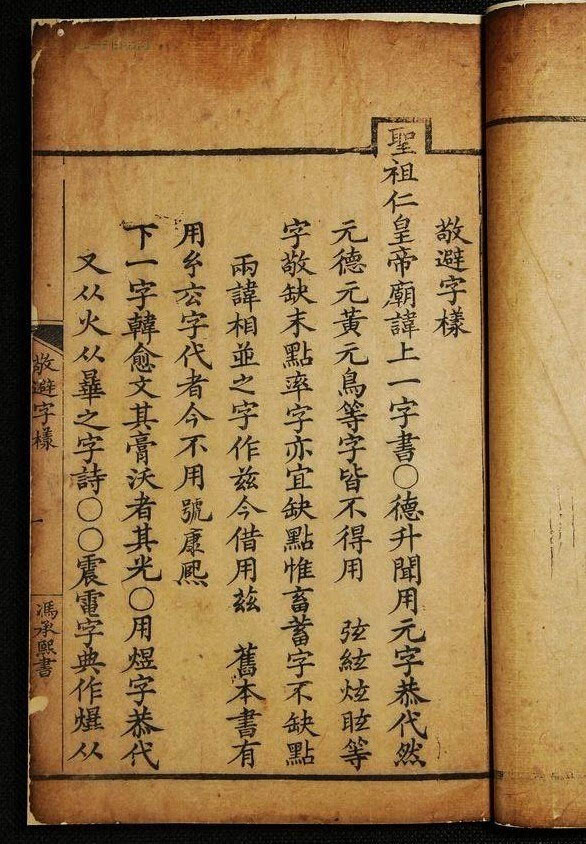 敬避字樣
聖祖仁皇帝廟諱上一字書〇德升聞用元字恭代然
元德元黃元鳥等字皆不得用 弦絃炫眩等
字敬缺末點率字亦宜缺點惟畜蓄字不缺點
兩諱相並之字作兹今借用茲 舊本書有
用字代者今不用號康熈
下一字韓愈文其膏沃者其光〇用煜字恭代
又从火从之字詩〇〇震電字典作爗从
敬避字樣
一
馮承熙書